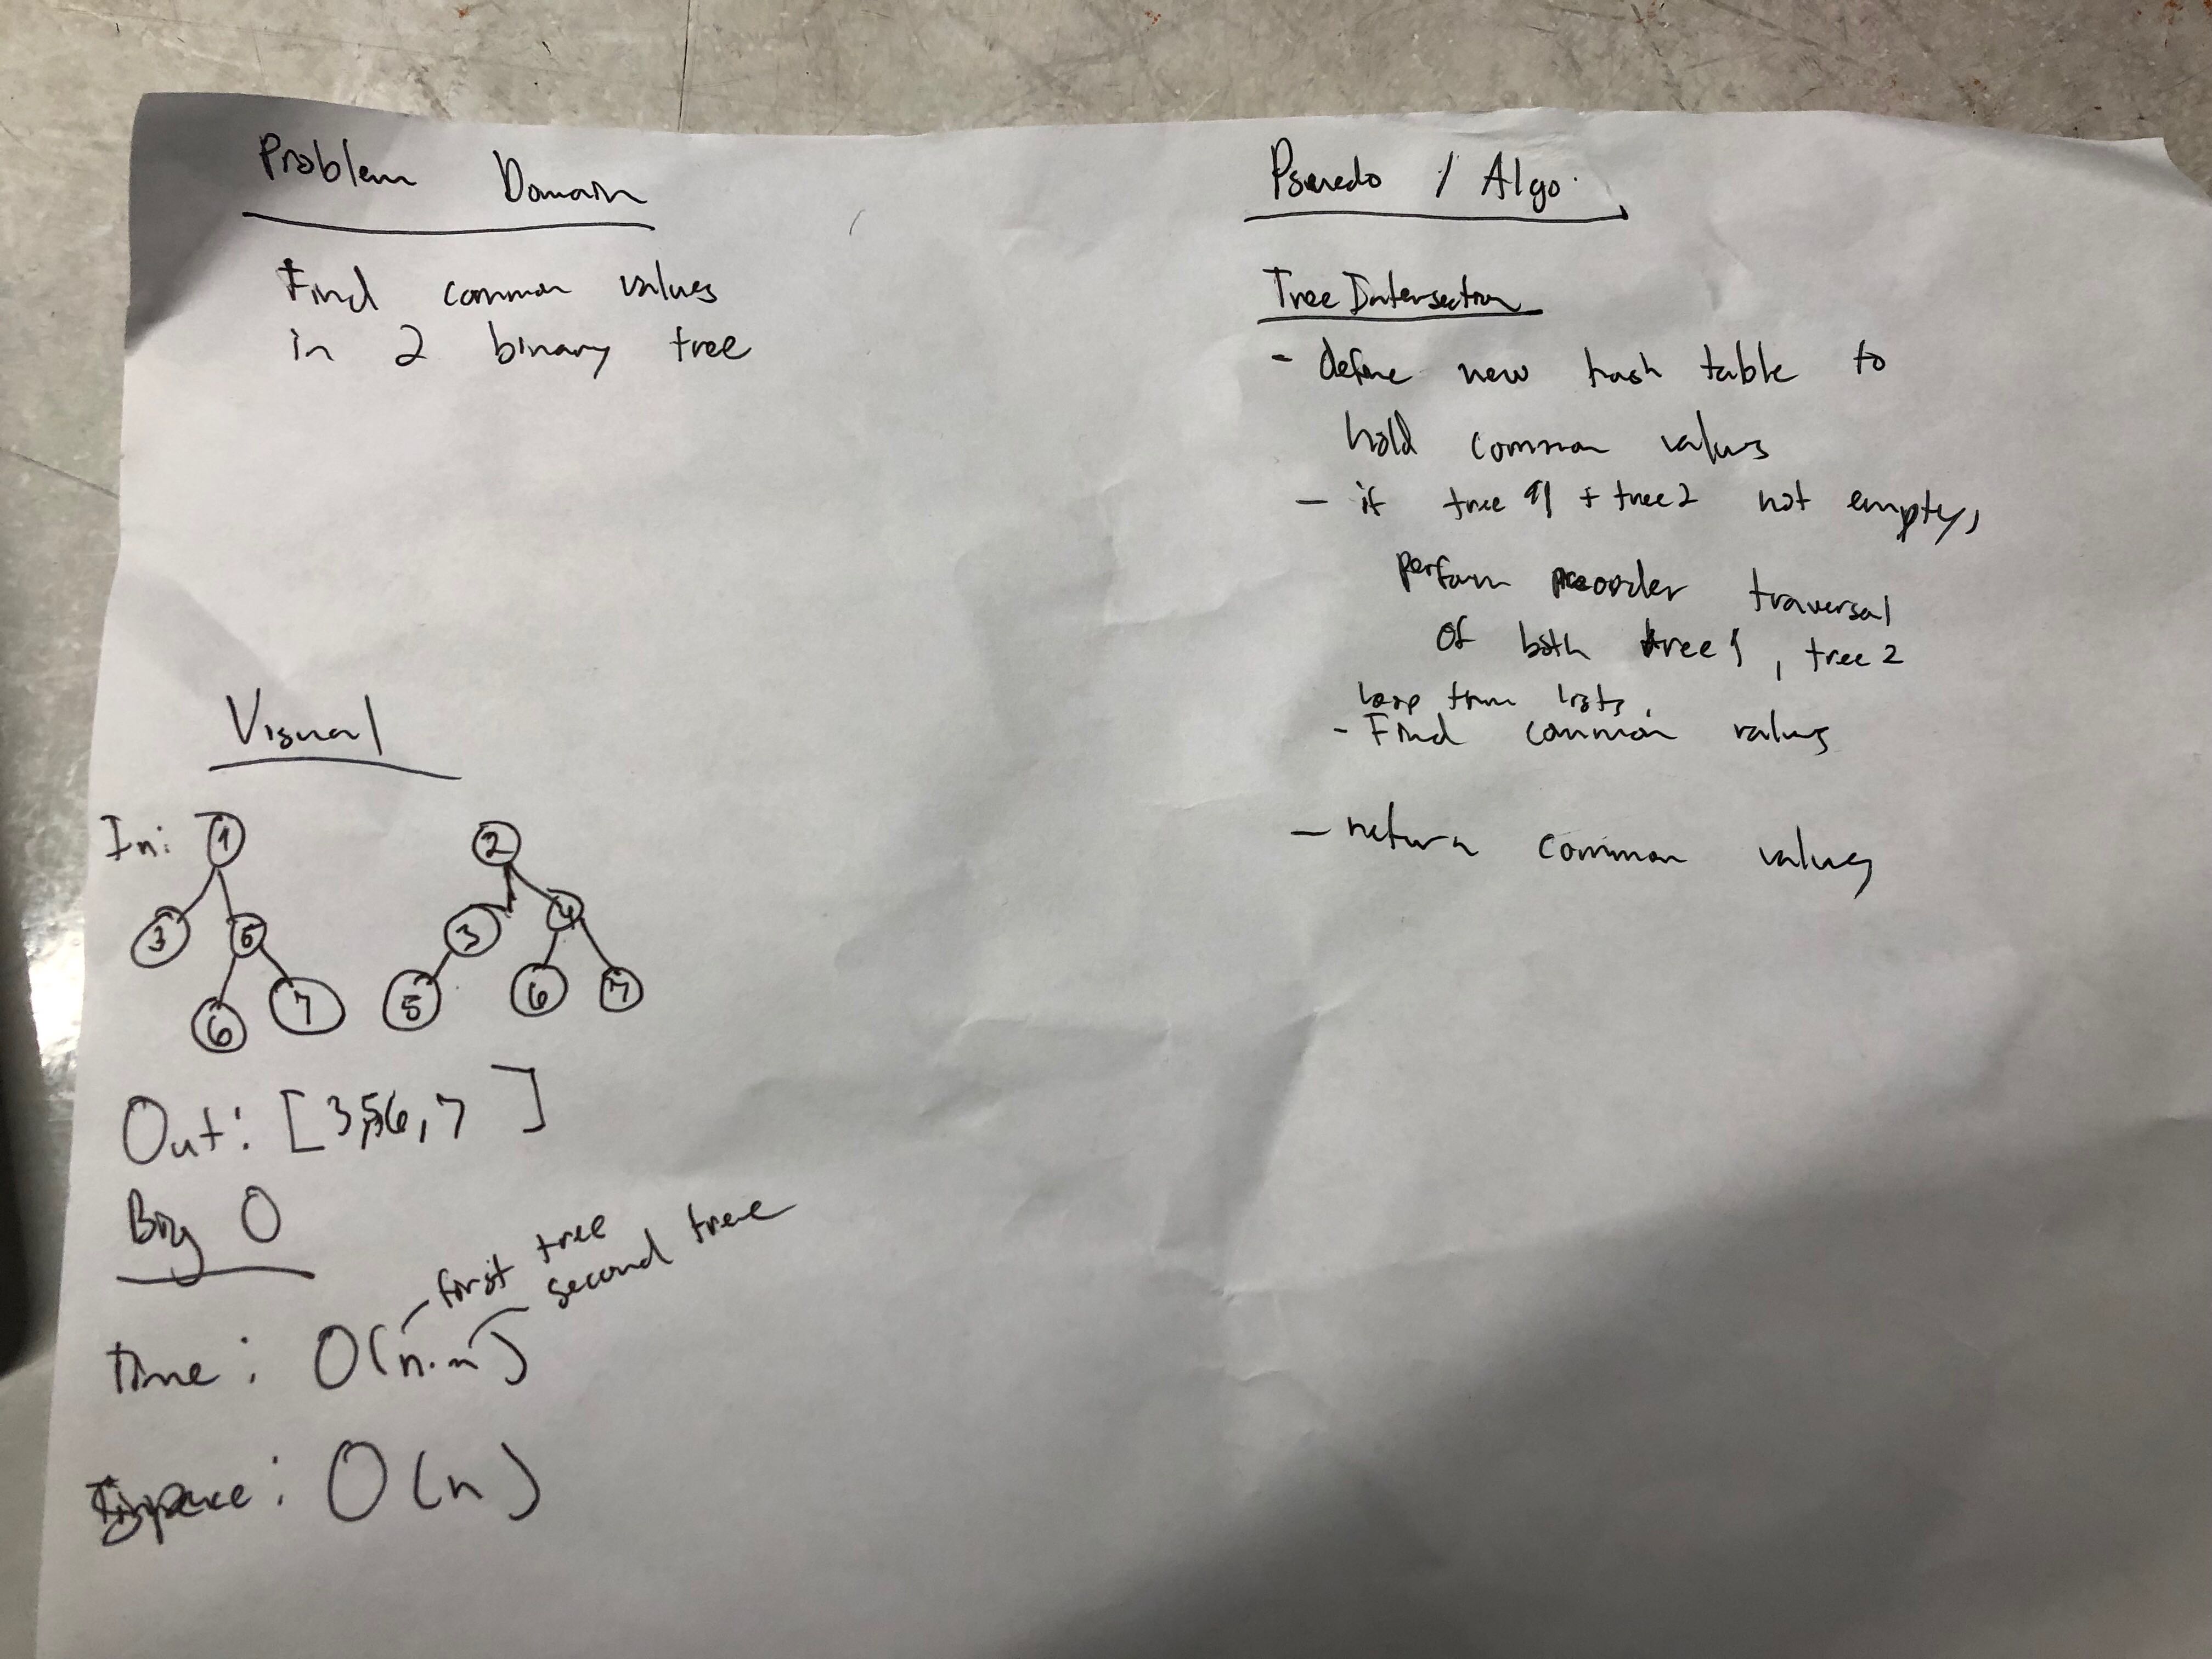 Problem Domain
Find common values
in 2 binary tree
Visual
In:
1
3 5
6 7
2
3 4
5 6 7
Out: [3,5,6,7]
Big O
first tree
second tree
time: O(n·n)
space: O(n)
Psuedo / Algo.
Tree Intersection
- define new hash table to
hold common values
- if tree 1 + tree 2 not empty,
perform preorder traversal
of both tree 1, tree 2
loop thru lists,
- Find common values
- return common values